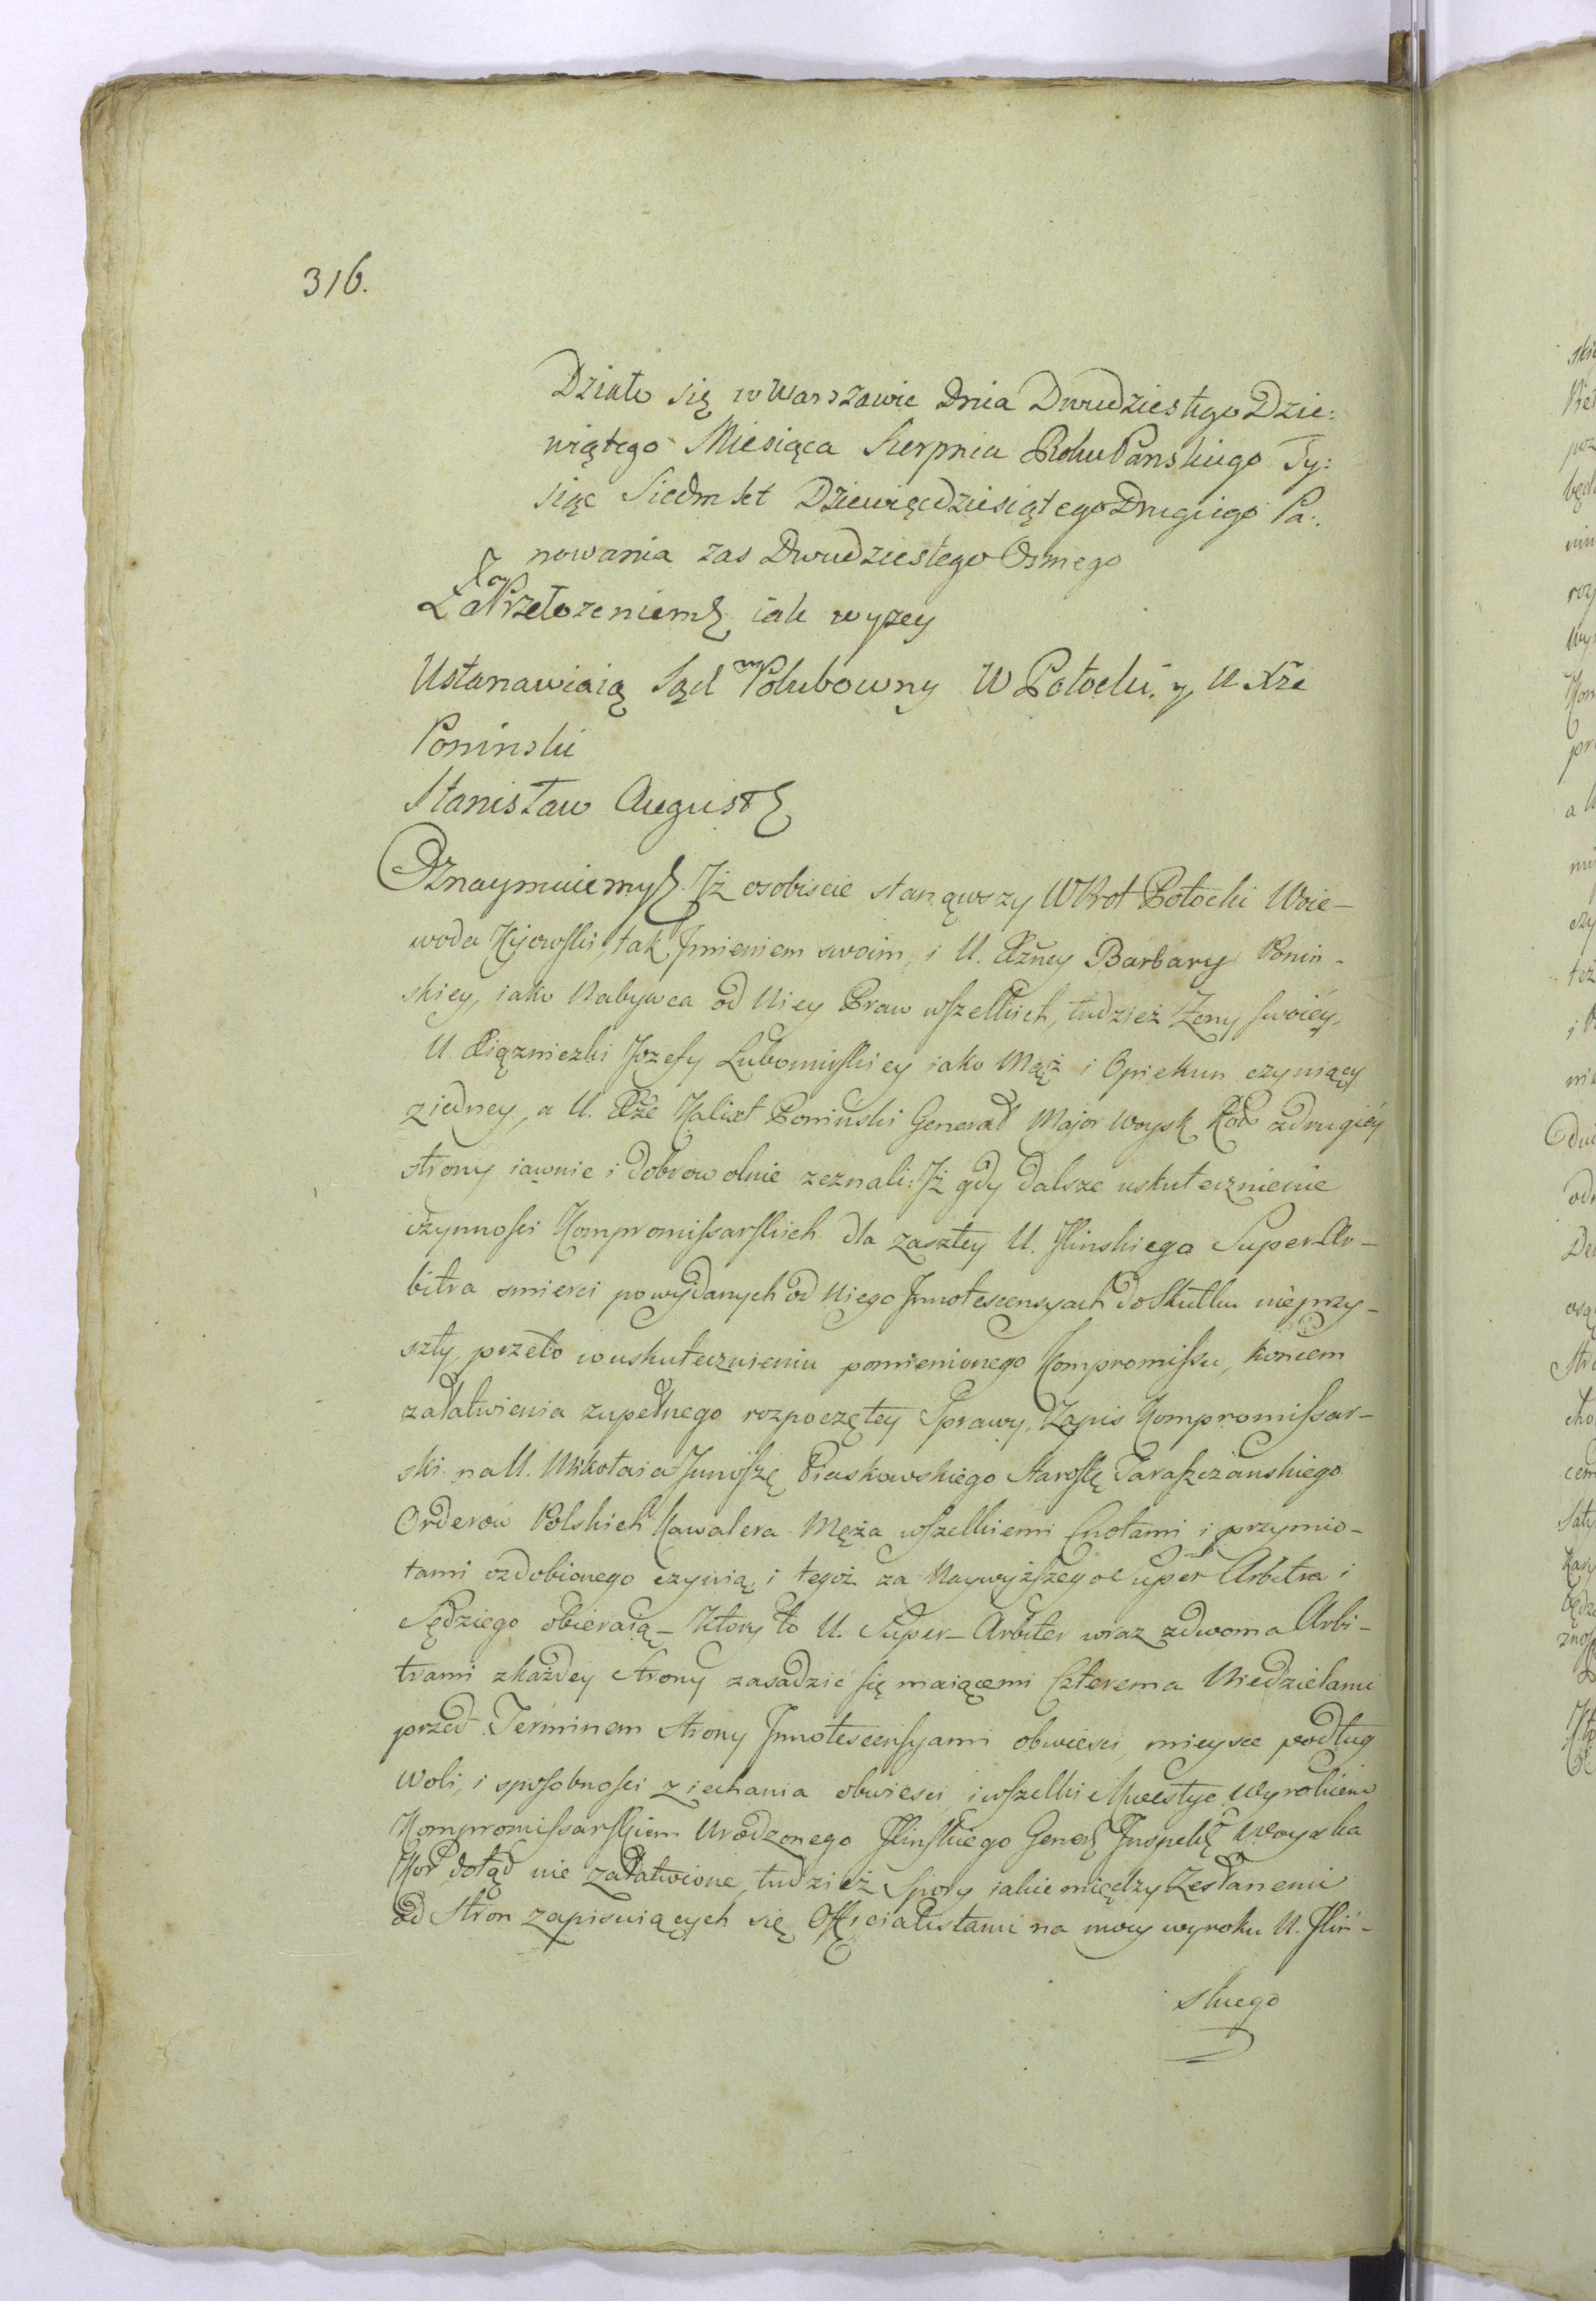 316.
Działo się w Warszawie Dnia Dwudziestego Dzie:
wiątego Miesiąca Sierpnia Roku Panskiego Ty:
siąc Siedmset Dziewięcdziesiątego Drugiego Pa:
nowania zas Dwudziestego Osmego
Za Przełozeniem iak wyzey
Ustanawiaią Sąd Polubowny W Potocki, y U Xże
Poninski
Stanisław August
Oznaymuiemy Jż osobiscie stanąwszy WProt Potocki Woie-
woda Kijowski, tak Jmieniem swoim, i U. Xżney Barbary Ponin-
skiey, iako Nabywca od Niey Praw wszelkich, tudzież Zony swoiéy,
U. Xiązniczki Jozefy Lubomirskiey iako Mąż i Opiekun czyniący
ziedney, a U. Xże Kalixt Poniński Generał Major Woysk Kor zdrugiéy
strony iawnie i dobrowolnie zeznali: Jż gdy dalsze uskutecznienie
czynnosci Kompromissarskich dla zaszłey U. Jlinskiego Super-Ar-
bitra smierci powydanych od Niego Jnnotescensyach do skutku nieprzy-
szły, przeto w uskutecznieniu pomienionego Kompromissu, koncem
załatwienia zupełnego rozpoczętey Sprawy, Zapis Kompromissar-
ski na U. Mikołaia Junoszę Piaskowskiego Starostę Taraszczanskiego
Orderów Polskich Kawalera Męża wszelkiemi Cnotami i przymio-
tami ozdobionego czynią, i tegoż za Naywyższego Super Arbitra i
Sędziego obieraią - Ktory to U. Super-Arbiter wraz zdwoma Arbi-
trami zkażdey Strony zasadzić się maiącemi Czterema Niedzielami
przed Terminem Strony Jnnotescensyami obwiesci, mieysce podług
Woli, i sposobnosci ziechania obwiesci, i wszelkie Kwestye Wyrokiem
Kompromissarskiem Urodzonego Jlinskiego Generł Jnspektr Woyska
Kor dotąd nie załatwione, tudzież Spory iakie między Zesłanemi
od Stron zapisuiących się Officialistami na mocy wyroku U. Jlin-
skiego